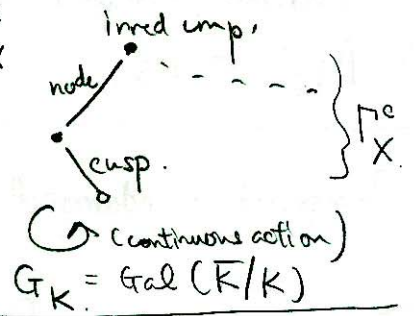 irred cmp.
node
Γ^c_X
cusp.
(continuous action)
G_K = Gal(K̄/K)